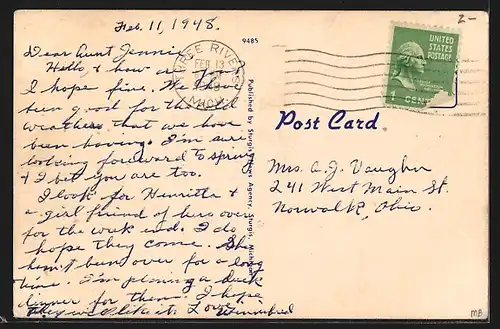 Feb. 11, 1948.
Dear Aunt Jennie
Hello, & how are You
I hope fine. We have
been good for the
weather that we have
been having. I'm sure
looking foreward to spring
& I bet you are too.
I look for Henrietta &
a girl friend of hers over
for the week end. I do
hope they come. She
hasn't been over for a long
time. I'm planing a duck
dinner for them. I hope
they will like it. Love
Winnifred
9485
Published by Sturgis News Agency, Sturgis, Michigan
THREE RIVERS
FEB 13
MICH.
UNITED
STATES
POSTAGE
1 CENT
2-
Post Card
Mrs. A. J. Vaughn
241 West Main St.
Norwalk, Ohio.
MB